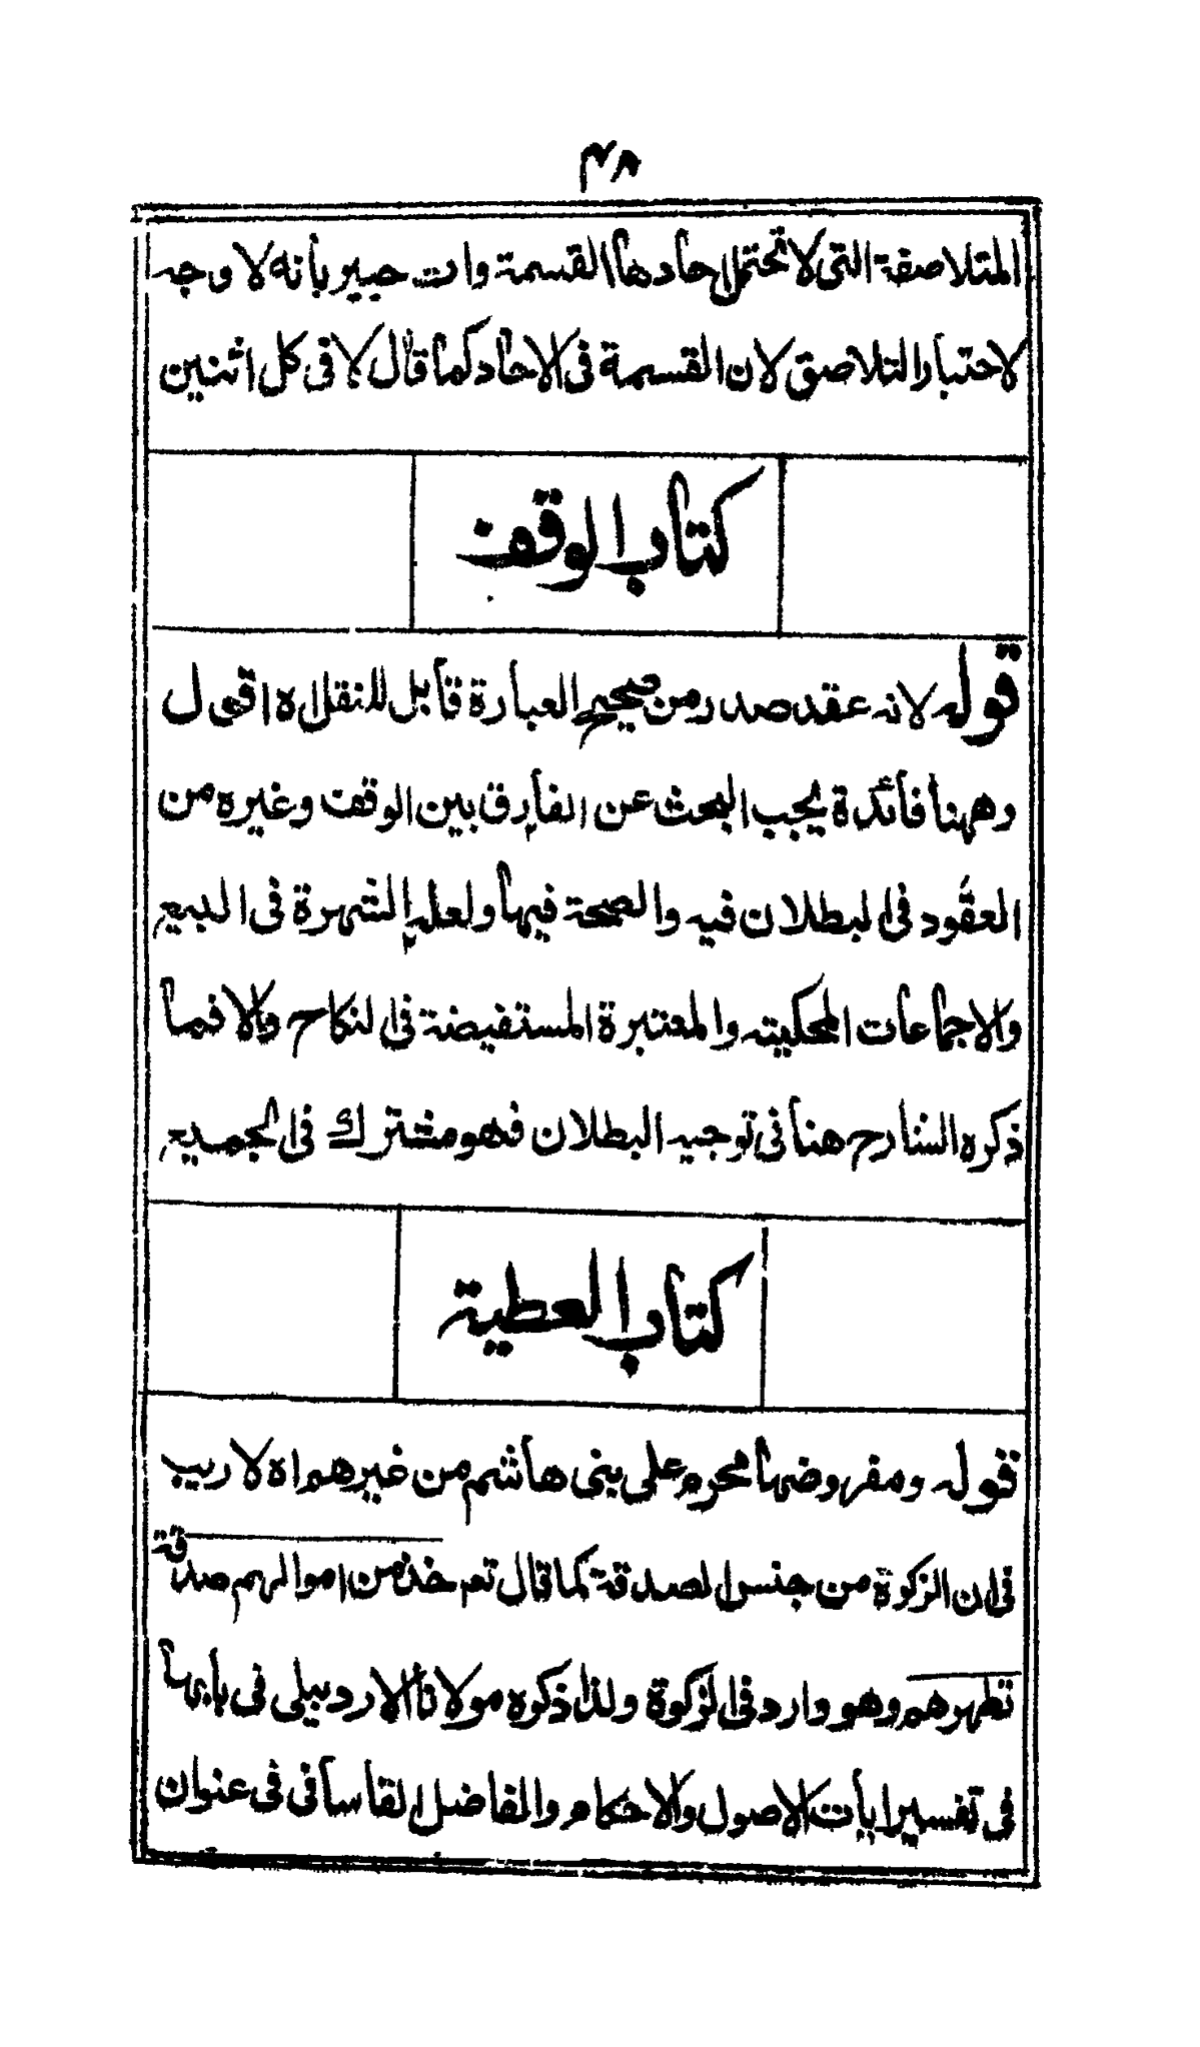 ٣٨
المتلاصقة التى لا تحتمل احادها القسمة وانت خبير بأنه لا وجه
لاعتبار التلاصق لان القسمة فى الاحاد كما قال لا فى كل اثنين
كتاب الوقف
قوله لانه عقد صدر من صحيح العبارة قابل للنقل اه اقول
وههنا فائدة يجب البحث عن الفارق بين الوقف وغيره من
العقود فى البطلان فيه والصحة فيها ولعله الشهرة فى البيع
والاجماعات المحكيته والمعتبرة المستفيضة فى النكاح والا فما
ذكره الشارح هنا فى توجيه البطلان فهو مشترك فى الجميع
كتاب العطية
قوله ومفروضها محرم على بنى هاشم من غيرهم اه لا ريب
فى ان الزكوة من جنس الصدقة كما قال تعم خذ من اموالهم صدقة
تطهرهم وهو وارد فى الزكوة ولذا ذكره مولانا الاردبيلى فى بابها
فى تفسير ايات الاصول والاحكام والفاضل القاسانى فى عنوان